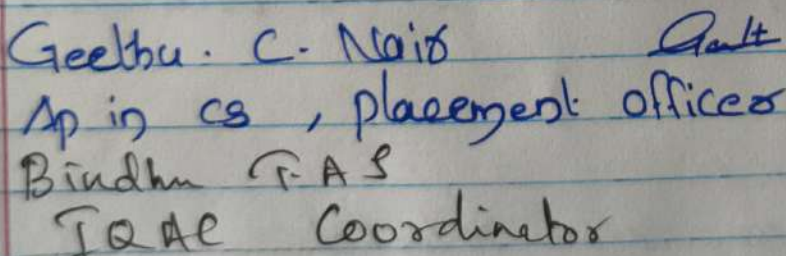 Geethu. C. Nair
Ap in cs , placement officer
Bindhu T. A S
IQAC Coordinator